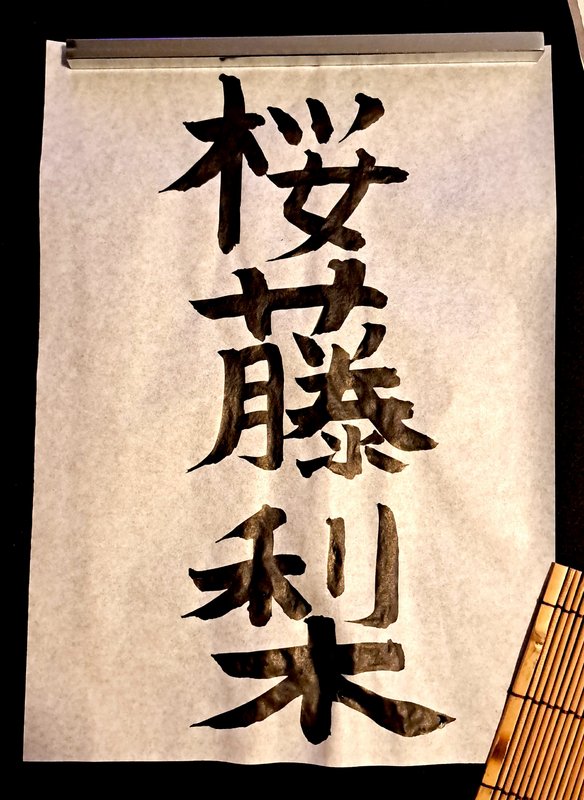 桜藤梨